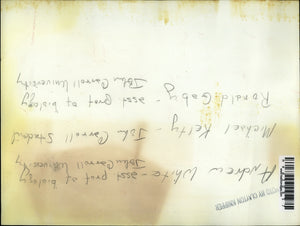 Andrew White - asst prof of biology
John Carroll University
Michael Kelty - Joh Carroll Student
Ronald Gaby - asst prof of biology
John Carroll University
PHOTO BY CLAYTON KNIPPER